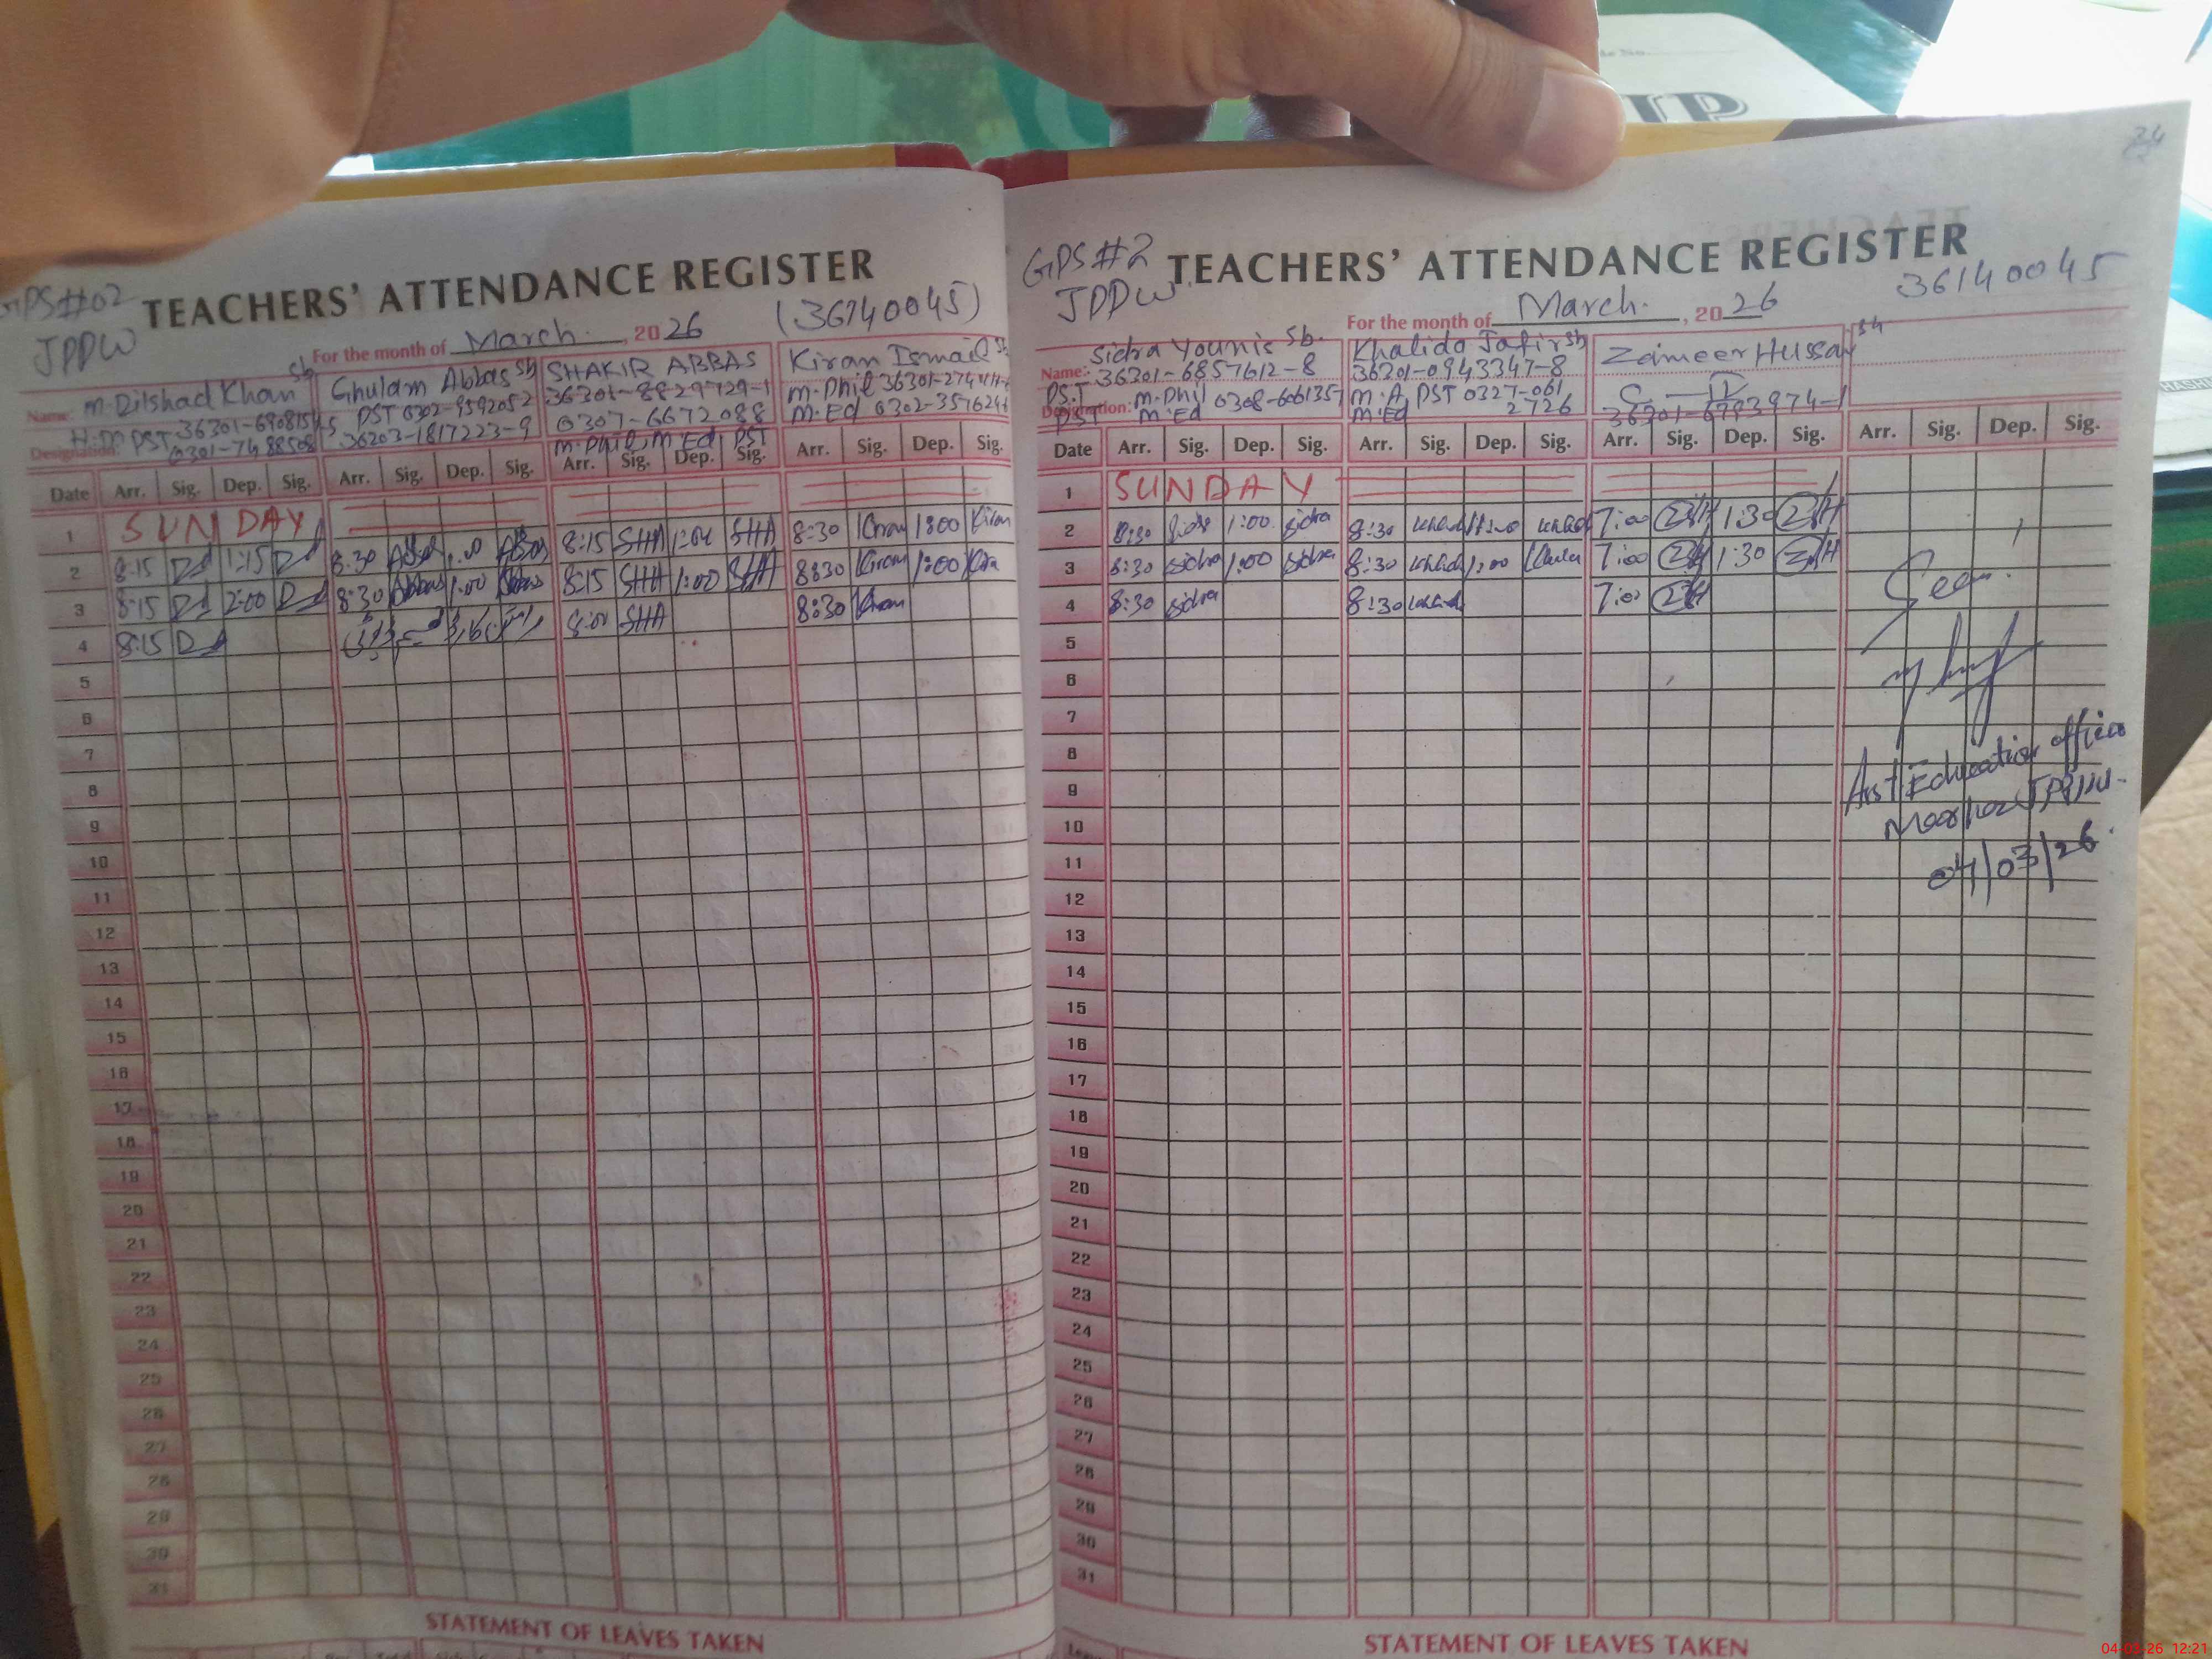 GPS#02
JPPW
TEACHERS' ATTENDANCE REGISTER
For the month of March. , 2026 (36140045)
Name: M. Dilshad Khan Sb
Designation: PST
Ghulam Abbas Sb
PST 0302-9592052
36203-1817223-9
SHAKIR ABBAS
36301-8829729-1
0307-6672088
M.Phil, M.Ed, PST
Kiran Ismail Sb
M.Phil 36301-274
M.Ed 0302-357624
Date Arr. Sig. Dep. Sig. Arr. Sig. Dep. Sig. Arr. Sig. Dep. Sig. Arr. Sig. Dep. Sig.
1 SUNDAY
2 8:15 1:15 8:30 Abbas 1:00 Abbas 8:15 SHA 1:00 SHA 8:30 Kiran 1:00 Kiran
3 8:15 2:00 8:30 Abbas 1:00 Abbas 8:15 SHA 1:00 SHA 8:30 Kiran 1:00 Kiran
4 8:15 SHA 8:30 Kiran
5
6
7
8
9
10
11
12
13
14
15
16
17
18
19
20
21
22
23
24
25
26
27
28
29
30
31
STATEMENT OF LEAVES TAKEN
34
GPS#2
JPPW
TEACHERS' ATTENDANCE REGISTER
36140045
For the month of March. , 2026
Name: Sidra Younis Sb.
36301-6857612-8
PST M.Phil 0308-6061357
Designation: PST M.Ed
Khalida Sb
36201-0943347-8
M.A PST 0327-061
M.Ed 2726
Zameer Hussain Sb
Date Arr. Sig. Dep. Sig. Arr. Sig. Dep. Sig. Arr. Sig. Dep. Sig. Arr. Sig. Dep. Sig.
1 SUNDAY
2 8:30 Sidra 1:00 Sidra 8:30 Khalida 1:00 Khalida 7:00 ZH 1:30 ZH
3 8:30 Sidra 1:00 Sidra 8:30 Khalida 1:00 Khalida 7:00 ZH 1:30 ZH
4 8:30 Sidra 8:30 Khalida 7:00 ZH
5
Seen.
6
7
8
Asst Education officer
9
10
Markaz JPPW.
11
04/03/26.
12
13
14
15
16
17
18
19
20
21
22
23
24
25
26
27
28
29
30
31
STATEMENT OF LEAVES TAKEN
04-03-26 12:21